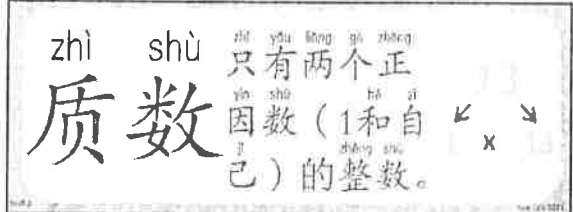 zhì shù
质数
zhǐ yǒu liǎng gè zhèng
只有两个正
yīn shù hé zì
因数（1和自
jǐ zhěng shù
己）的整数。
x